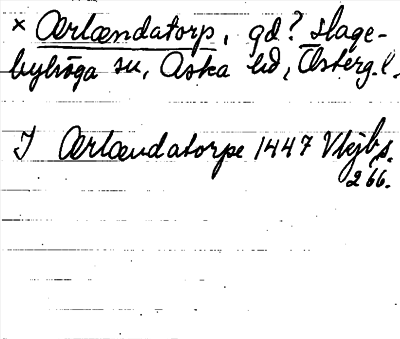 × Ærlændatorp, gd? Hage-
byhöga sn, Aska hd, Österg.l.
I Ærlændatorpe 1447 Vtejb, s.
266.